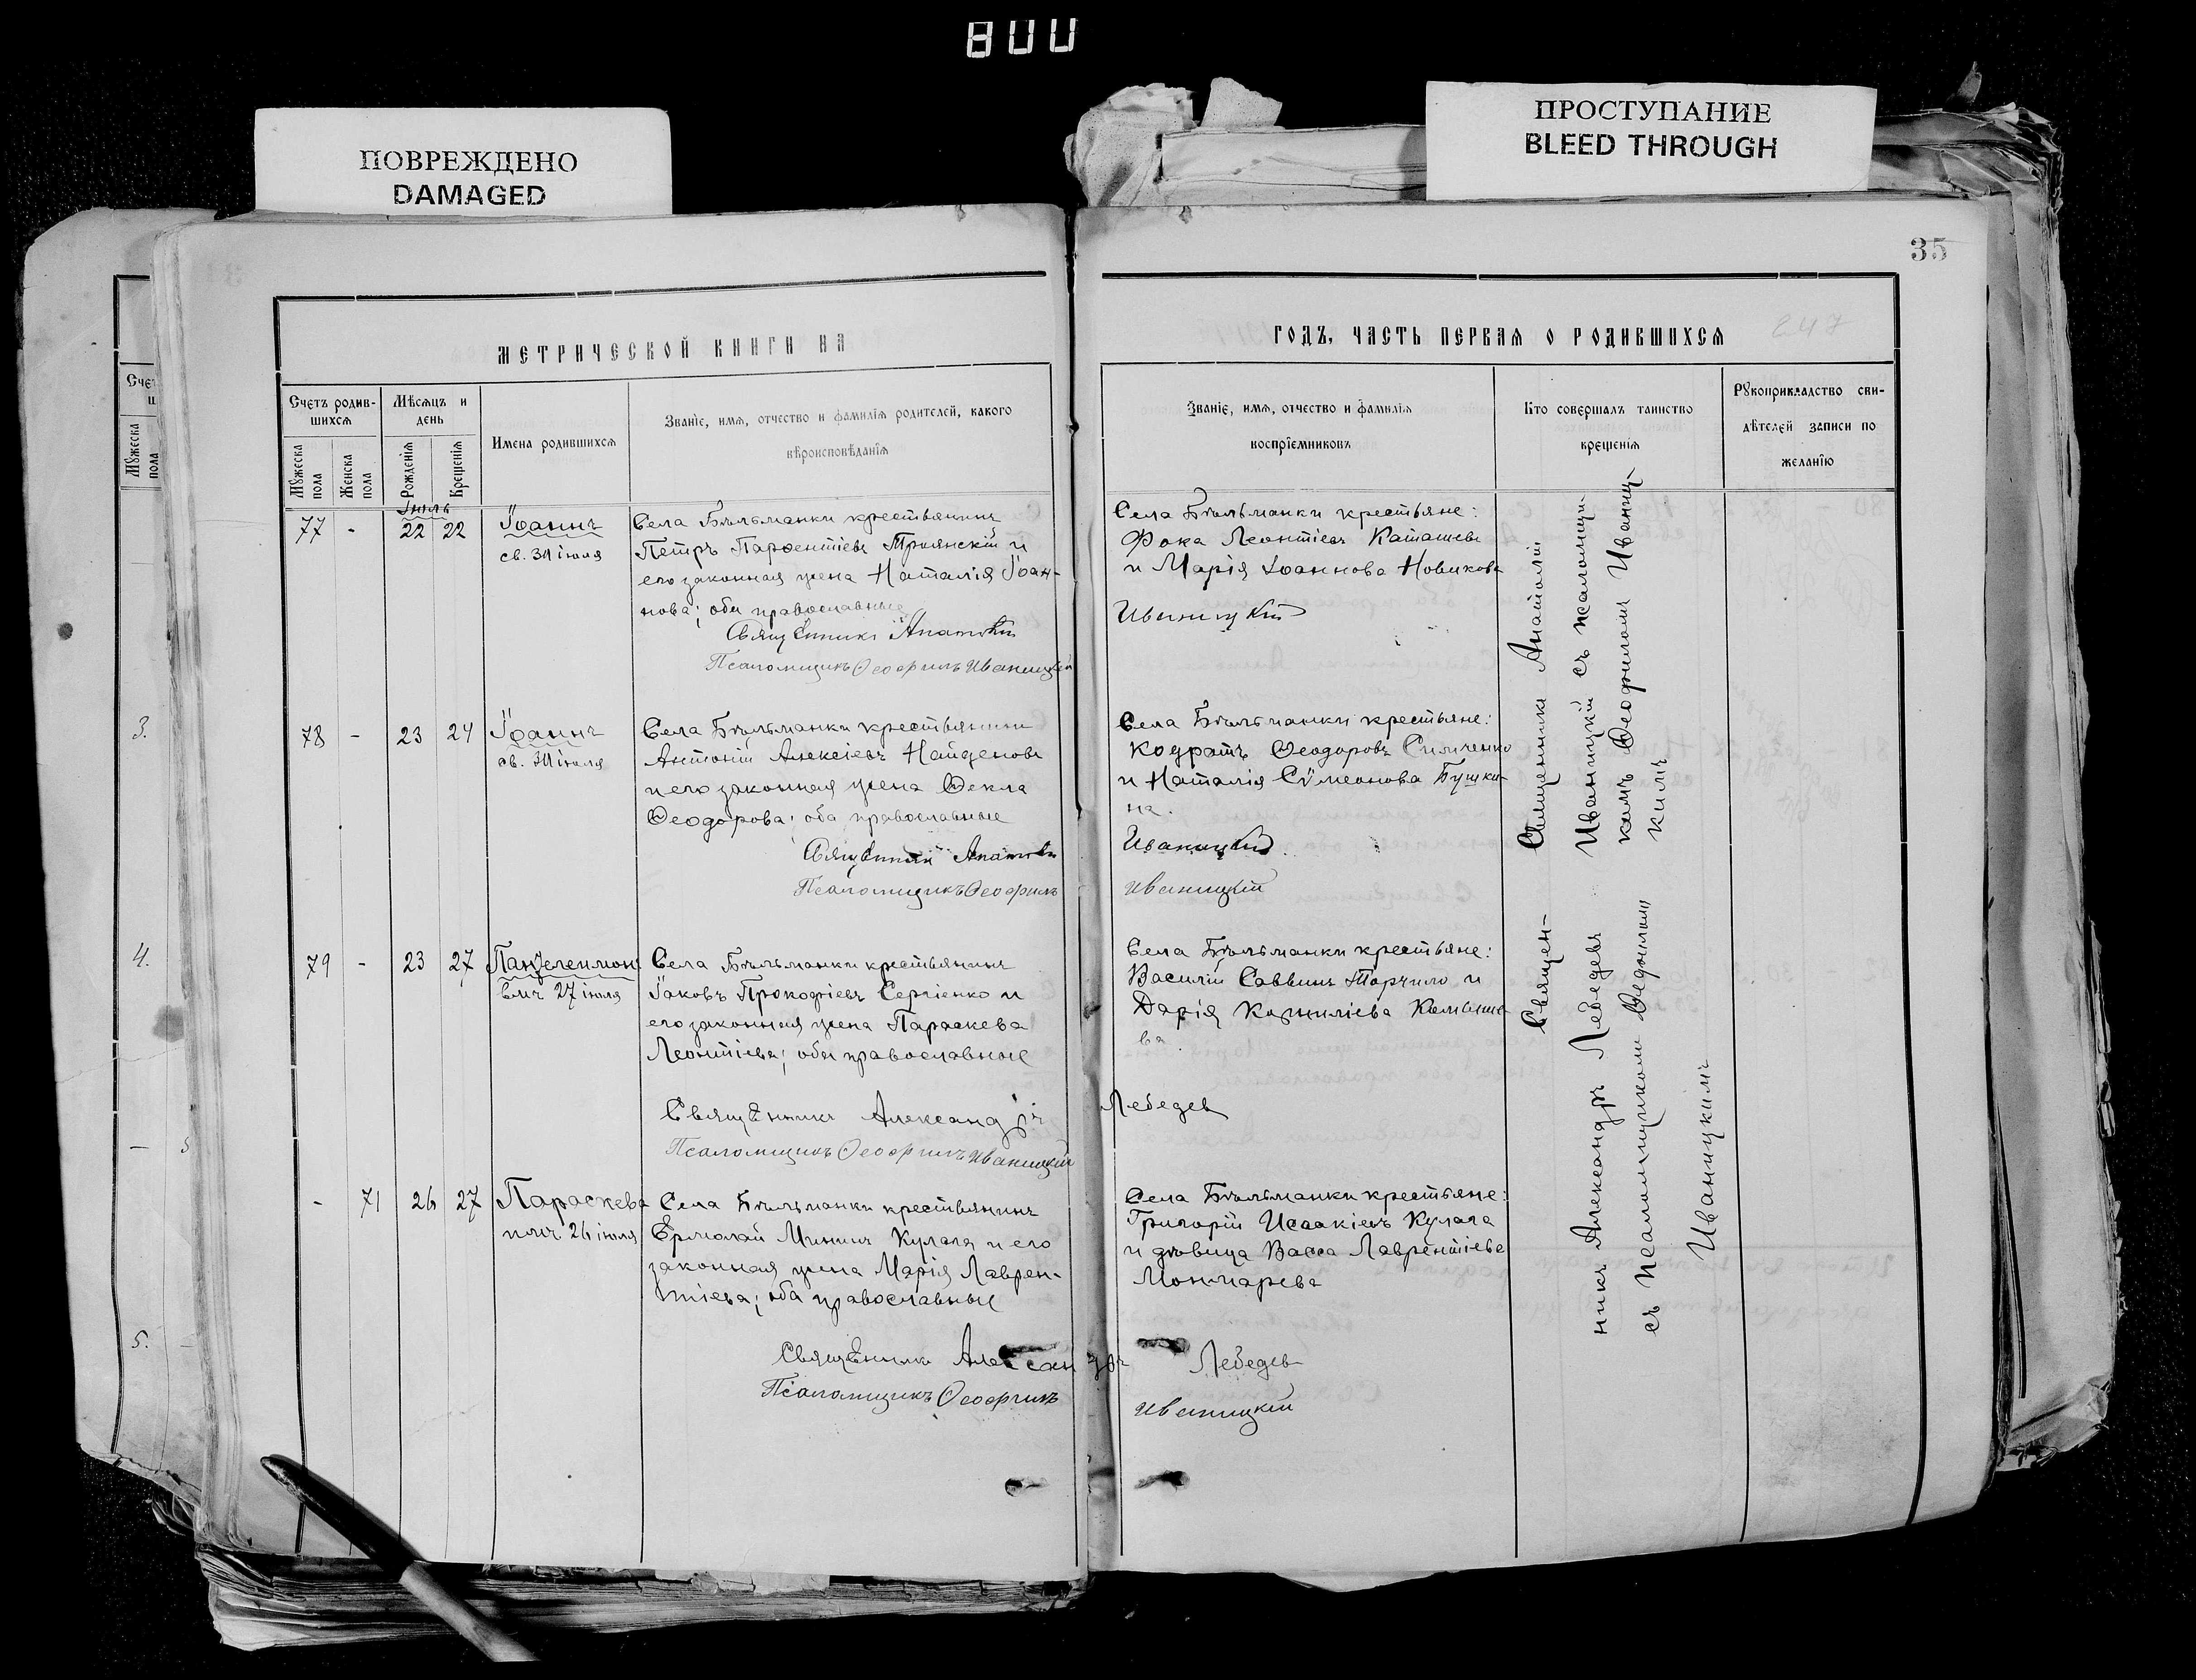 800
ПОВРЕЖДЕНО
DAMAGED
ПРОСТУПАНИЕ
BLEED THROUGH
35
247
МЕТРИЧЕСКОЙ КНИГИ НА
ГОДЪ, ЧАСТЬ ПЕРВАЯ О РОДИВШИХСЯ
Счетъ родив-
шихся
Мужеска
пола
Женска
пола
Мѣсяцъ и
день
Рожденія
Крещенія
Имена родившихся
Званіе, имя, отчество и фамилія родителей, какого
вѣроисповѣданія
Званіе, имя, отчество и фамилія
воспріемниковъ
Кто совершалъ таинство
крещенія
Рукоприкладство сви-
дѣтелей записи по
желанію
Іюль
77 - 22 22
Іоаннъ
св. 30 іюля
Села Бѣльманки крестьянинъ
Петръ Парѳентіевъ Троянскій и
его законная жена Наталія Іоан-
нова; оба православные
Священникъ Анатолій
Псаломщикъ Ѳеофилъ Иваницкій
Села Бѣльманки крестьяне:
Фока Леонтіевъ Каташевъ
и Марія Іоаннова Новикова
Иваницкій
3.
78 - 23 24
Іоаннъ
св. 30 іюля
Села Бѣльманки крестьянинъ
Антоній Алексіевъ Найденовъ
и его законная жена Ѳекла
Ѳеодорова; оба православные
Священникъ Анатолій
Псаломщикъ Ѳеофилъ
Села Бѣльманки крестьяне:
Кодратъ Ѳеодоровъ Симченко
и Наталія Сѵмеонова Бушки-
на.
Иваницкій
Иваницкій
Священникъ Анатолій
Иваницкій съ псаломщи-
комъ Ѳеофиломъ Иваниц-
кимъ
4.
79 - 23 27
Пантелеимонъ
вмч 27 іюля
Села Бѣльманки крестьянинъ
Іаковъ Прокофіевъ Сергіенко и
его законная жена Параскева
Леонтіева; оба православные
Священникъ Александръ
Псаломщикъ Ѳеофилъ Иваницкій
Села Бѣльманки крестьяне:
Василій Саввинъ Торчило и
Дарія Корниліева
ва.
Лебедев
- 71 26 27
Параскева
пмч 26 іюля
Села Бѣльманки крестьянинъ
Ермолай Мининъ Кулага и его
законная жена Марія Лаврен-
тіева; оба православные
Священникъ Александръ
Псаломщикъ Ѳеофилъ
Села Бѣльманки крестьяне:
Григорій Исаакіевъ Кулага
и дѣвица Васса Лаврентіева
Мончарева
Лебедев
Иваницкій
Священ-
никъ Александръ Лебедевъ
съ псаломщикомъ Ѳеофиломъ
Иваницкимъ
5.